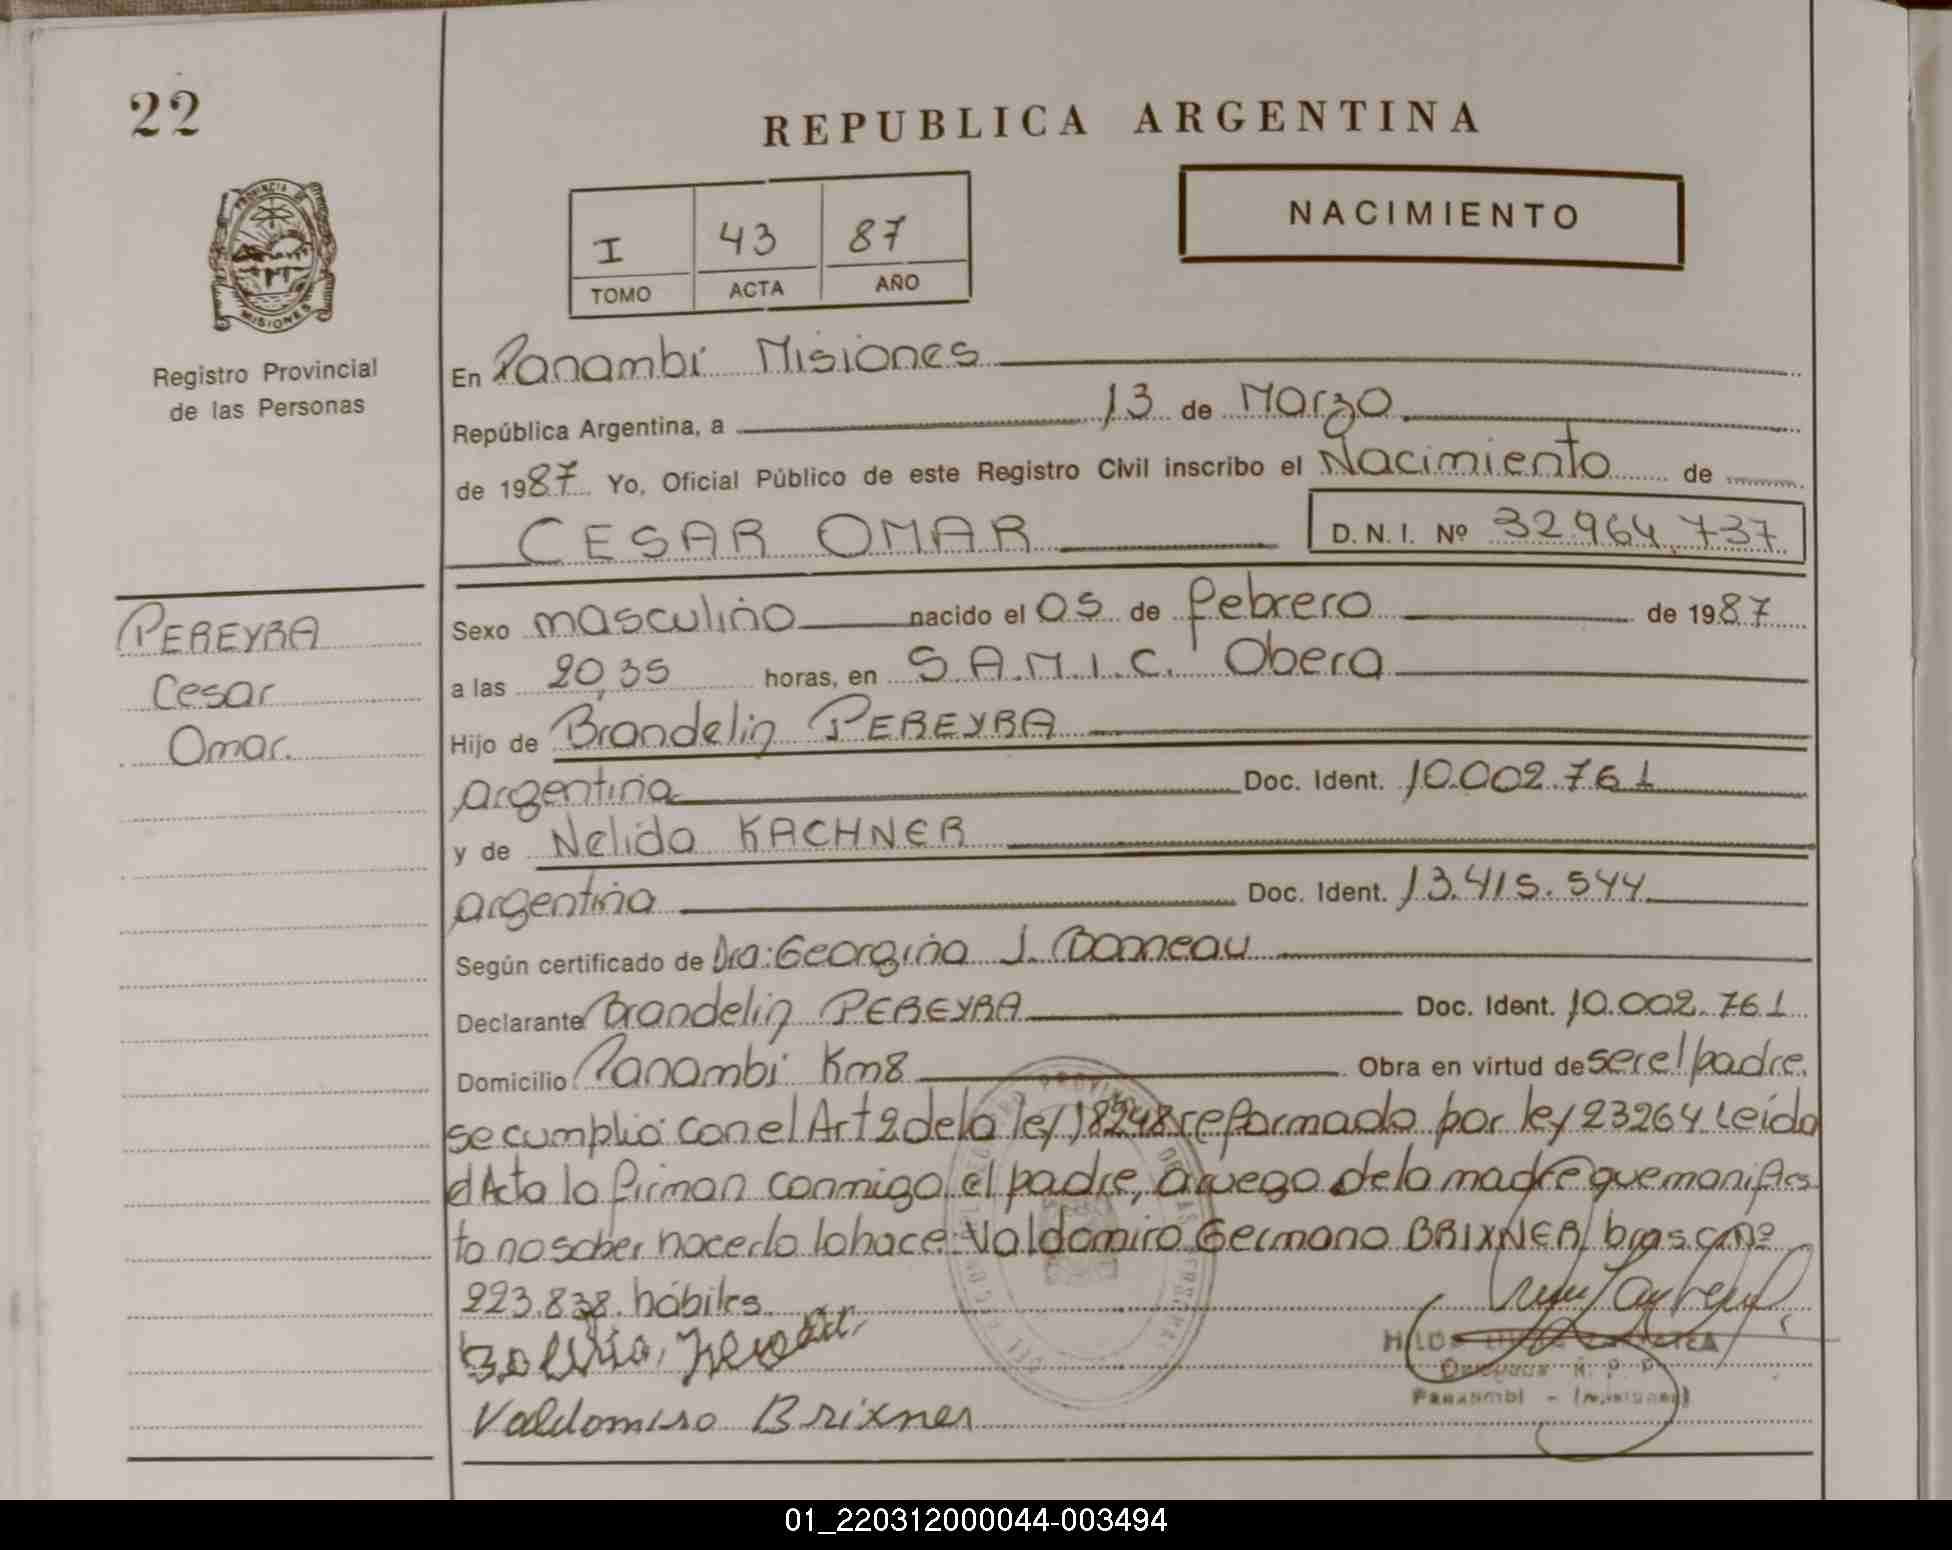 22
REPUBLICA ARGENTINA
PROVINCIA DE
MISIONES
Registro Provincial
de las Personas
I 43 87
TOMO ACTA AÑO
NACIMIENTO
En Panambí Misiones
República Argentina, a 13 de Marzo
de 1987 Yo, Oficial Público de este Registro Civil inscribo el Nacimiento de
CESAR OMAR D.N.I. Nº 32.964.737
PEREYRA
Cesar
Omar.
Sexo masculino nacido el 05 de febrero de 1987
a las 20,35 horas, en S.A.M.I.C. Obera
Hijo de Brandelin PEREYRA
argentina Doc. Ident. 10.002.761
y de Nelida KACHNER
argentina Doc. Ident. 13.415.544
Según certificado de Dra: Georgina J.
Declarante Brandelin PEREYRA Doc. Ident. 10.002.761
Domicilio Panambi Km8 Obra en virtud de ser el padre.
se cumplió con el Art 2 de la ley 18248 reformado por ley 23264 Leida
el Acta lo firman conmigo el padre, a ruego de la madre que manifies
to no saber hacerlo lo hace: Valdomiro Germano BRIXNER bras. C.Nº
223.838. hábiles.
Valdomiro Brixner
Panambi - (Misiones)
01_220312000044-003494